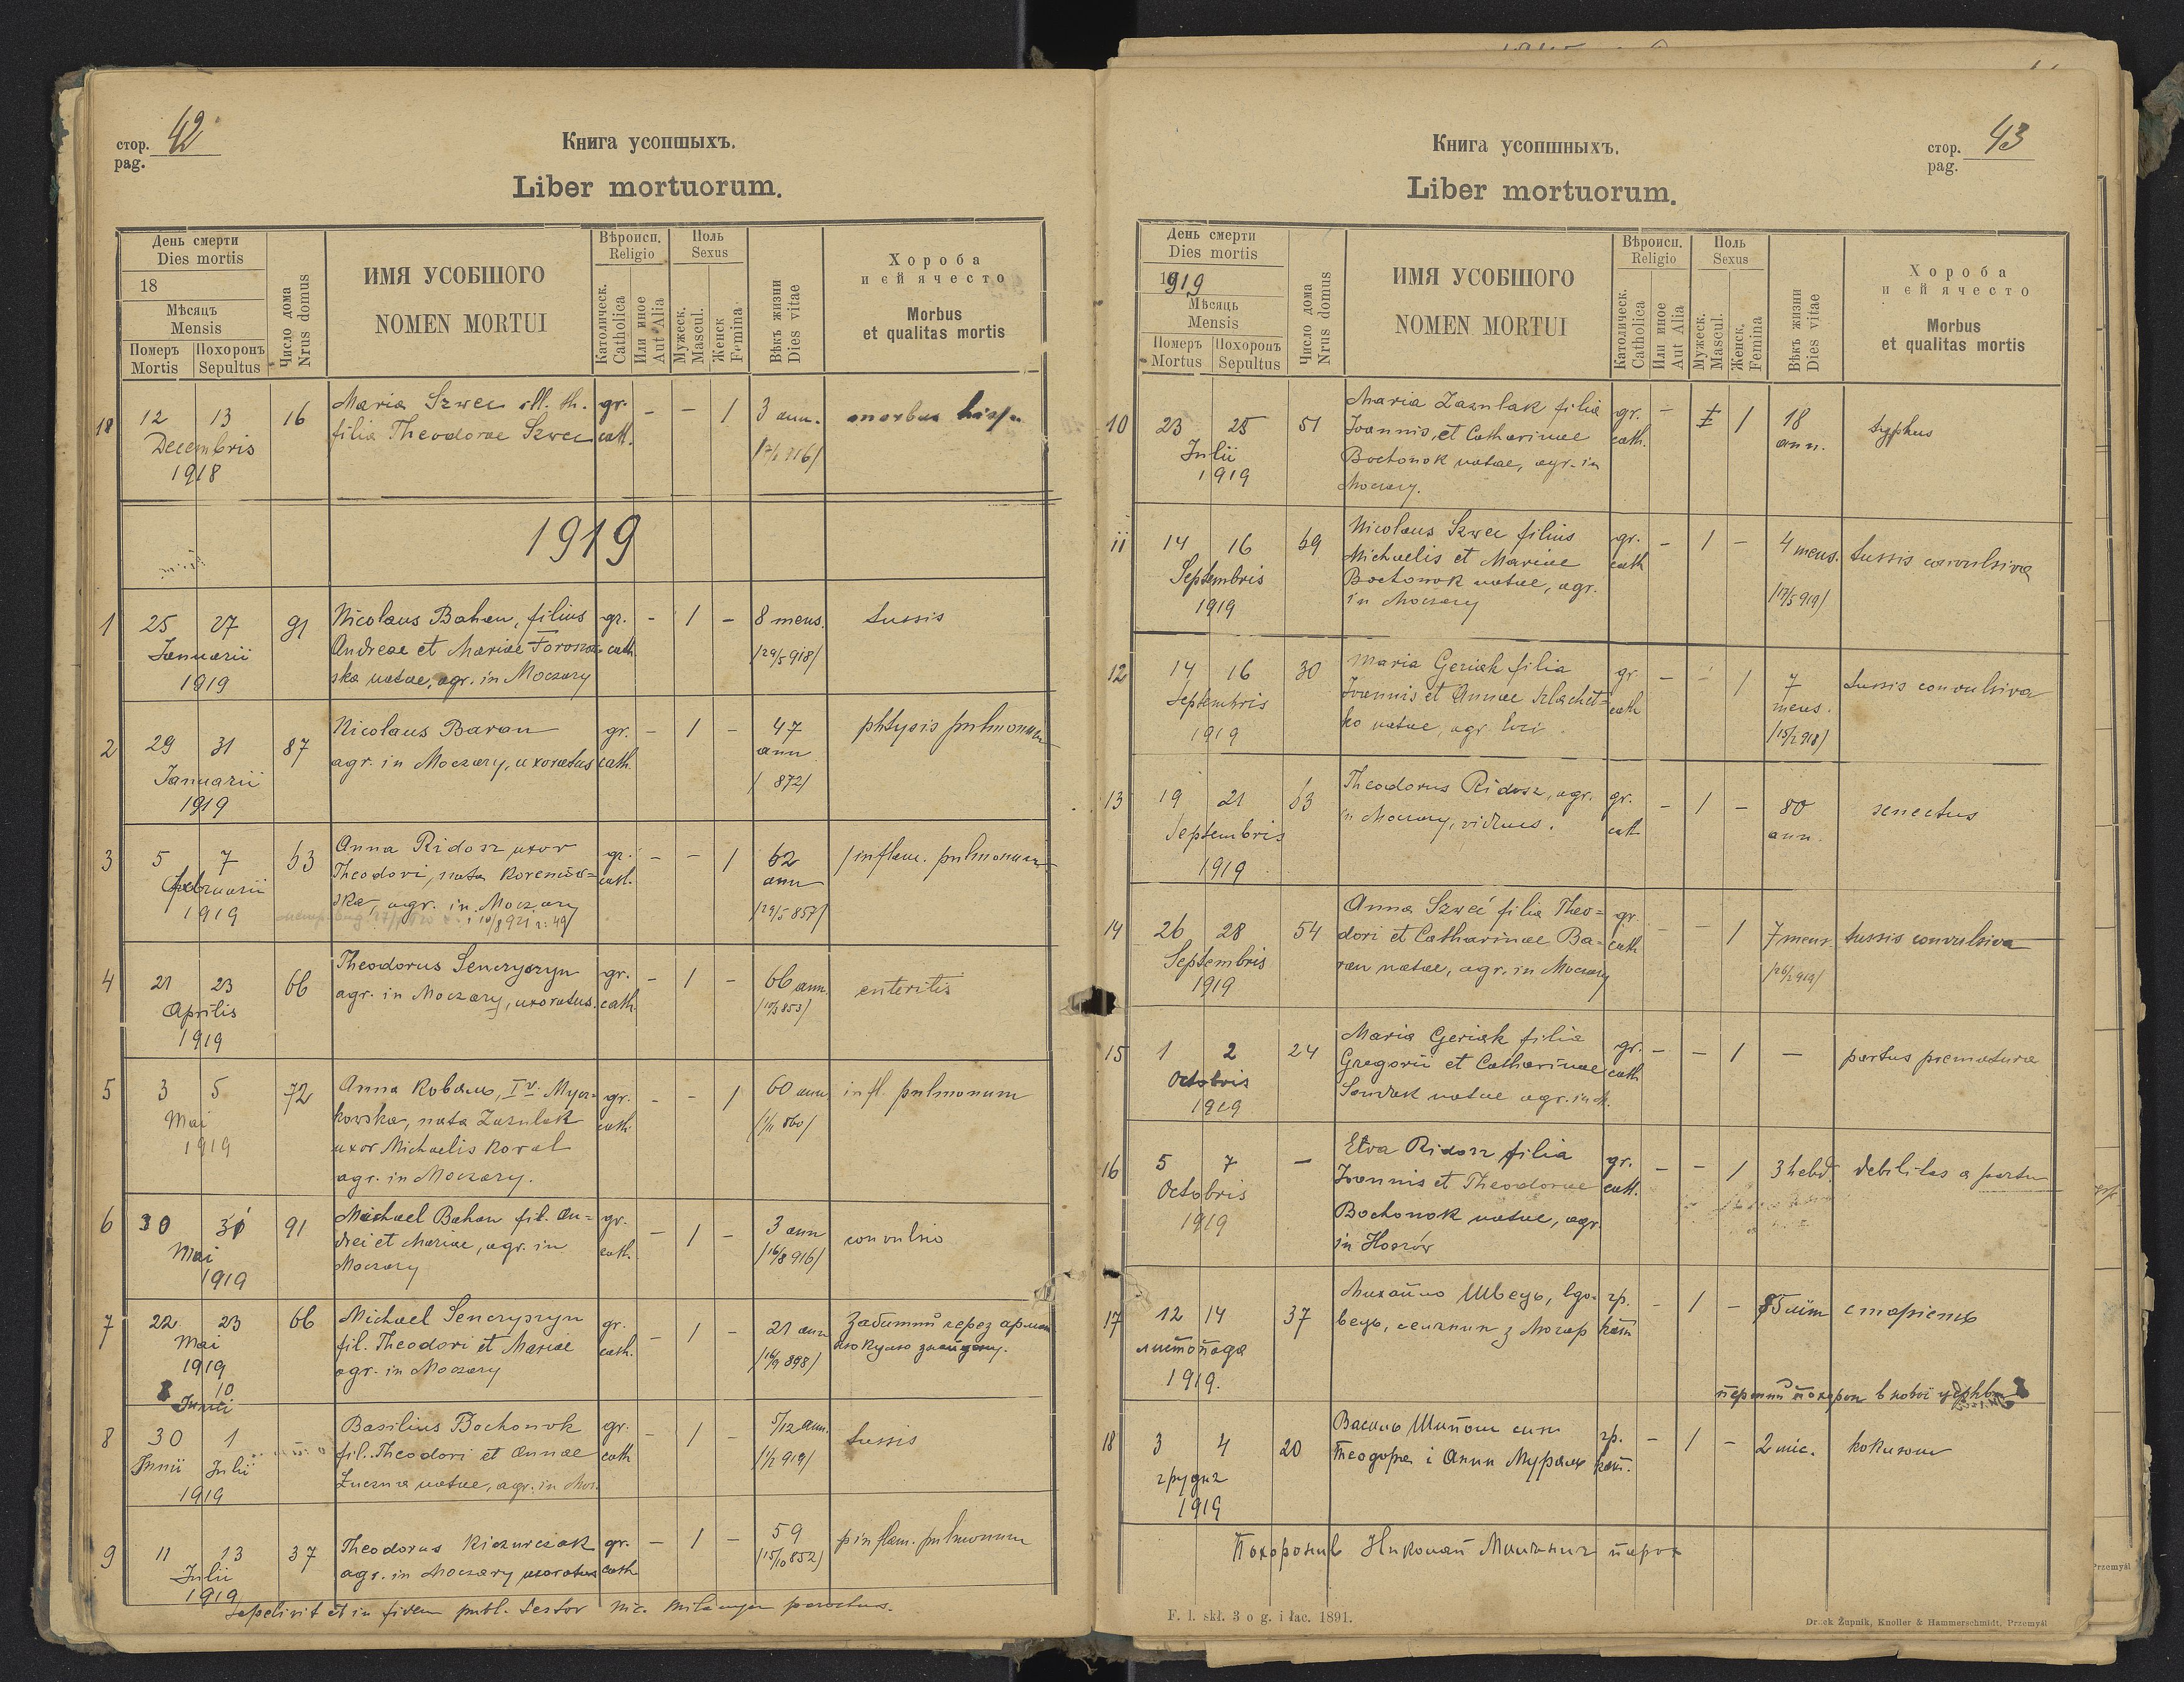 стор. 42
pag.
Книга усопшыхъ.
Liber mortuorum.
День смерти
Dies mortis
18
Мѣсяцъ
Mensis
Померъ Похоронъ
Mortis Sepultus
Число дома
Nrus domus
ИМЯ УСОБШОГО
NOMEN MORTUI
Вѣроисп.
Religio
Католическ.
Catholica
Или иное
Aut Alia
Поль
Sexus
Мужеск.
Mascul.
Женск
Femina
Вѣкъ жизни
Dies vitae
Хороба
и ей ячесто
Morbus
et qualitas mortis
18 12 13 16 Maria Szwec ill. th. gr. - - 1 3 ann. morbus
Decembris filia Theodorae Szwec cath.
1918
1919
1 25 27 91 Nicolaus Bahan, filius gr. - 1 - 8 mens. tussis
Januarii Andreae et Mariae Torons= cath. /29/5 918/
1919 ska natae, agr. in Moczary
2 29 31 87 Nicolaus Baran gr. - 1 - 47 phtysis pulmonum
Januarii agr. in Moczary, uxoratus cath. ann
1919 / 872/
3 5 7 63 Anna Ridosz uxor gr. - - 1 62 /inflam. pulmonum
Februarii Theodori, nata Korenióv= cath. ann
1919 ska, agr. in Moczary /29/5 857/
4 21 23 66 Theodorus Senczyszyn gr. - 1 - 66 ann. enteritis
Aprilis agr. in Moczary, uxoratus. cath.
1919
5 3 5 72 Anna Kobans, Iv. Mysz= gr. - - 1 60 ann. infl. pulmonum
Mai kowska, nata Zaznlak cath.
1919 uxor Michaelis Koval
agr. in Moczary.
6 30 31 91 Michael Bahan fil. An= gr. - 1 - 3 ann convulsio
Mai drei et Mariae, agr. in cath. /16/8 916/
1919 Moczary
7 22 23 66 Michael Senczyszyn gr. - 1 - 21 ann Забитий через армат
Mai fil. Theodori et Mariae cath. /16/9 898/ ню кулю знайдену.
1919 agr. in Moczary
10
Junii
8 30 1 Basilius Bochonok gr. - 1 - 5/12 ann. tussis
Junii Julii fil. Theodori et Annae cath /1/2 919/
1919 natae, agr. in Moc.
9 11 13 37 Theodorus Kiczurczak gr. - 1 - 59 inflam. pulmonum
Julii agr. in Moczary uxoratus cath /15/10 852/
1919
Sepelivit et in fidem publ. testor Nic. parochus.
Книга усопшныхъ.
стор. 43
pag.
Liber mortuorum.
День смерти
Dies mortis
1919
Мѣсяць
Mensis
Померъ Похоронъ
Mortus Sepultus
Число дома
Nrus domus
ИМЯ УСОБШОГО
NOMEN MORTUI
Вѣроисп.
Religio
Католическ.
Catholica
Или иное
Aut Alia
Поль
Sexus
Мужеск.
Mascul.
Женск.
Femina
Вѣкъ жизни
Dies vitae
Хороба
и ей ячесто
Morbus
et qualitas mortis
10 23 25 51 Maria Zaznlak filia gr. - 1 18 typhus
Julii Joannis, et Catharinae cath. ann.
1919 Bochonok natae, agr. in
Moczary.
11 14 16 59 Nicolaus Szwec filius gr. - 1 - 4 mens. tussis convulsiva
Septembris Michaelis et Mariae cath
1919 Bochonok natae, agr. /17/5 919/
in Moczary
12 14 16 30 Maria Geriak filia gr. - - 1 7 tussis convulsiva
Septembris Joannis et Annae Szlachet= cath mens.
1919 ko natae, agr. /15/2 918/
13 19 21 63 Theodorus Ridosz, agr. gr. - 1 - 80 senectus
Septembris in Moczary, viduus. cath ann.
1919
14 26 28 54 Anna Szweć filia Theo= gr. - - 1 7 mens. tussis convulsiva
Septembris dori et Catharinae Ba= cath
1919 ran natae, agr. in Moczary /26/2 919/
15 1 2 24 Maria Geriak filia gr. - - 1 - partus prematura
Octobris Gregorii et Catharinae cath
1919 natae agr. in M.
16 5 7 - Eva Ridosz filia gr. - - 1 3 hebd. debilitas a partu
Octobris Joannis et Theodorae cath.
1919 Bochonok natae, agr.
in Hoszów
17 12 14 37 Михайло Швець, вдо= гр. - 1 - 85 літ старість
листопада вець, селянин з Мочар кат
1919.
перший похорон в новой церкви
18 3 4 20 Василь Шипош син гр. - 1 - 2 міс. коклюш
грудня Теодора і Анни Мураль кат.
1919
Похоронив Николай парох
F. l. skł. 3 o g. i łac. 1891.
Druck Żupnik, Knoller & Hammerschmidt, Przemyśl
Przemyśl